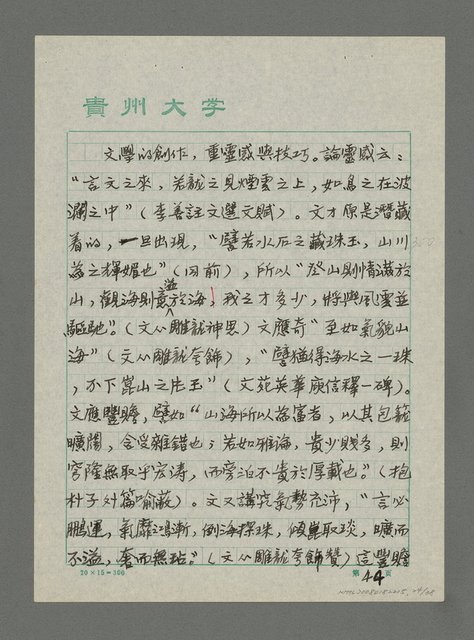 貴州大学
文學的創作，重靈感與技巧。論靈感云：
“言文之來，若龍之見煙雲之上，如鳥之在波
瀾之中”（李善註文選文賦）。文才原是潛藏
着的，一旦出現，“譬若水石之藏珠玉，山川
為之揮媚也”（同前），所以“登山則情滿於
山，觀海則意溢於海，我之才多少，將與風雲並
驅馳”。（文心雕龍神思）文應奇“至如氣貌山
海”（文心雕龍夸飾），“譬猶得海水之一珠，
求下崑山之片玉”（文苑英華 信釋一碑）。
文應豐贍，譬如“山海所以為富者，以其包籠
曠闊，含受雜錯也；若如雅論，貴少賤多，則
穹隆無取乎宏濤，而旁泊不貴於厚載也。”（抱
朴子外篇喻蔽）。文又講究氣勢充沛，“言必
鵬運，氣靡鴻漸，倒海探珠，傾崑取琰，曠而
不溢，奢而無玷。”（文心雕龍夸飾贊）這豐贍
20×15=300
第 44 页